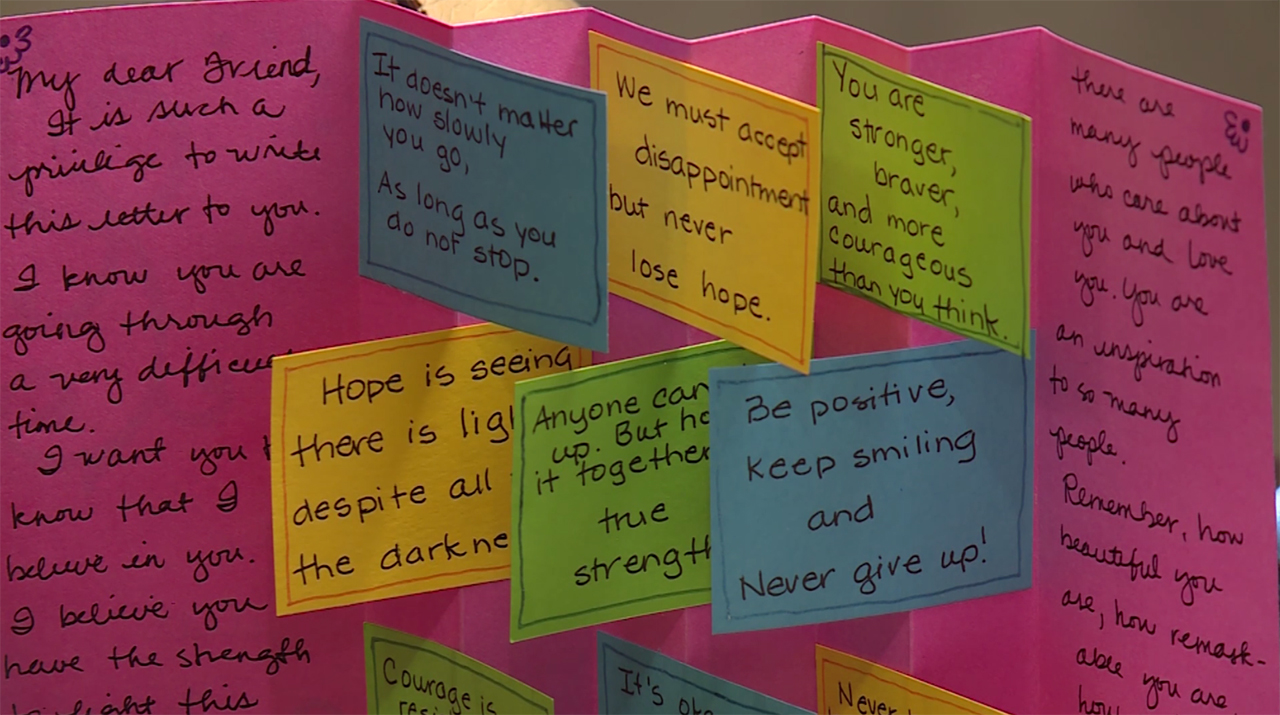 My dear Friend,
It is such a
privilige to write
this letter to you.
I know you are
going through
a very
time.
I want you
know that I
believe in you.
I believe you
have the strength
fight this
It doesn't matter
how slowly
you go,
As long as you
do not stop.
We must accept
disappointment
but never
lose hope.
You are
stronger,
braver,
and more
courageous
than you think.
Hope is seeing
there is
despite all
the
Anyone can
up. But
it together
true
strength
Be positive,
keep smiling
and
Never give up!
Courage is
It's
Never
there are
many people
who care about
you and love
you. You are
an inspiration
to so many
people.
Remember, how
beautiful you
are, how remark-
able you are
how